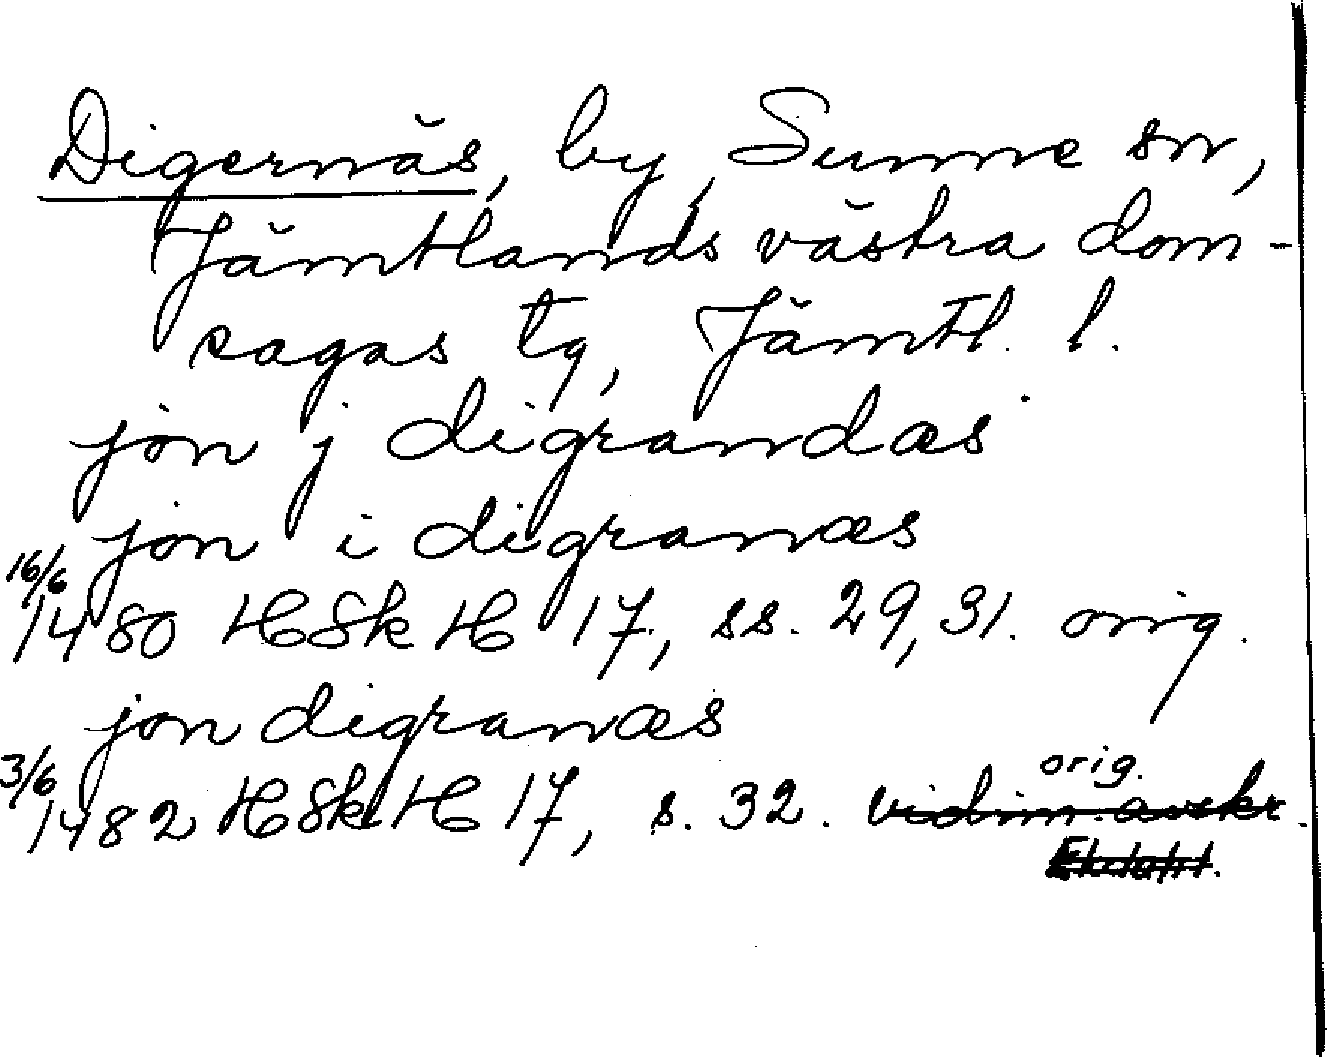 Digernäs, by, Sunne sn,
Jämtlands västra dom-
sagas tg, Jämtl. l.
jon j digrandæs
jon i digranæs
16/6
1480 HSkH 17, ss. 29, 31. orig.
jon digranæs
3/6 orig.
1482 HSkH 17, s. 32. vidim. avskr.